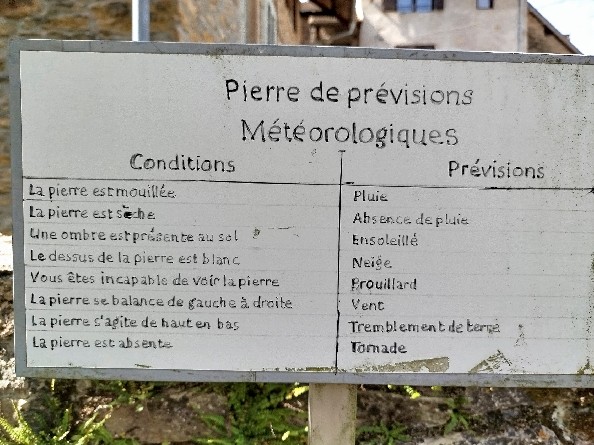 Pierre de prévisions
Météorologiques
Conditions Prévisions
La pierre est mouillée Pluie
La pierre est sèche Absence de pluie
Une ombre est présente au sol Ensoleillé
Le dessus de la pierre est blanc Neige
Vous êtes incapable de voir la pierre Brouillard
La pierre se balance de gauche à droite Vent
La pierre s'agite de haut en bas Tremblement de terre
La pierre est absente Tornade